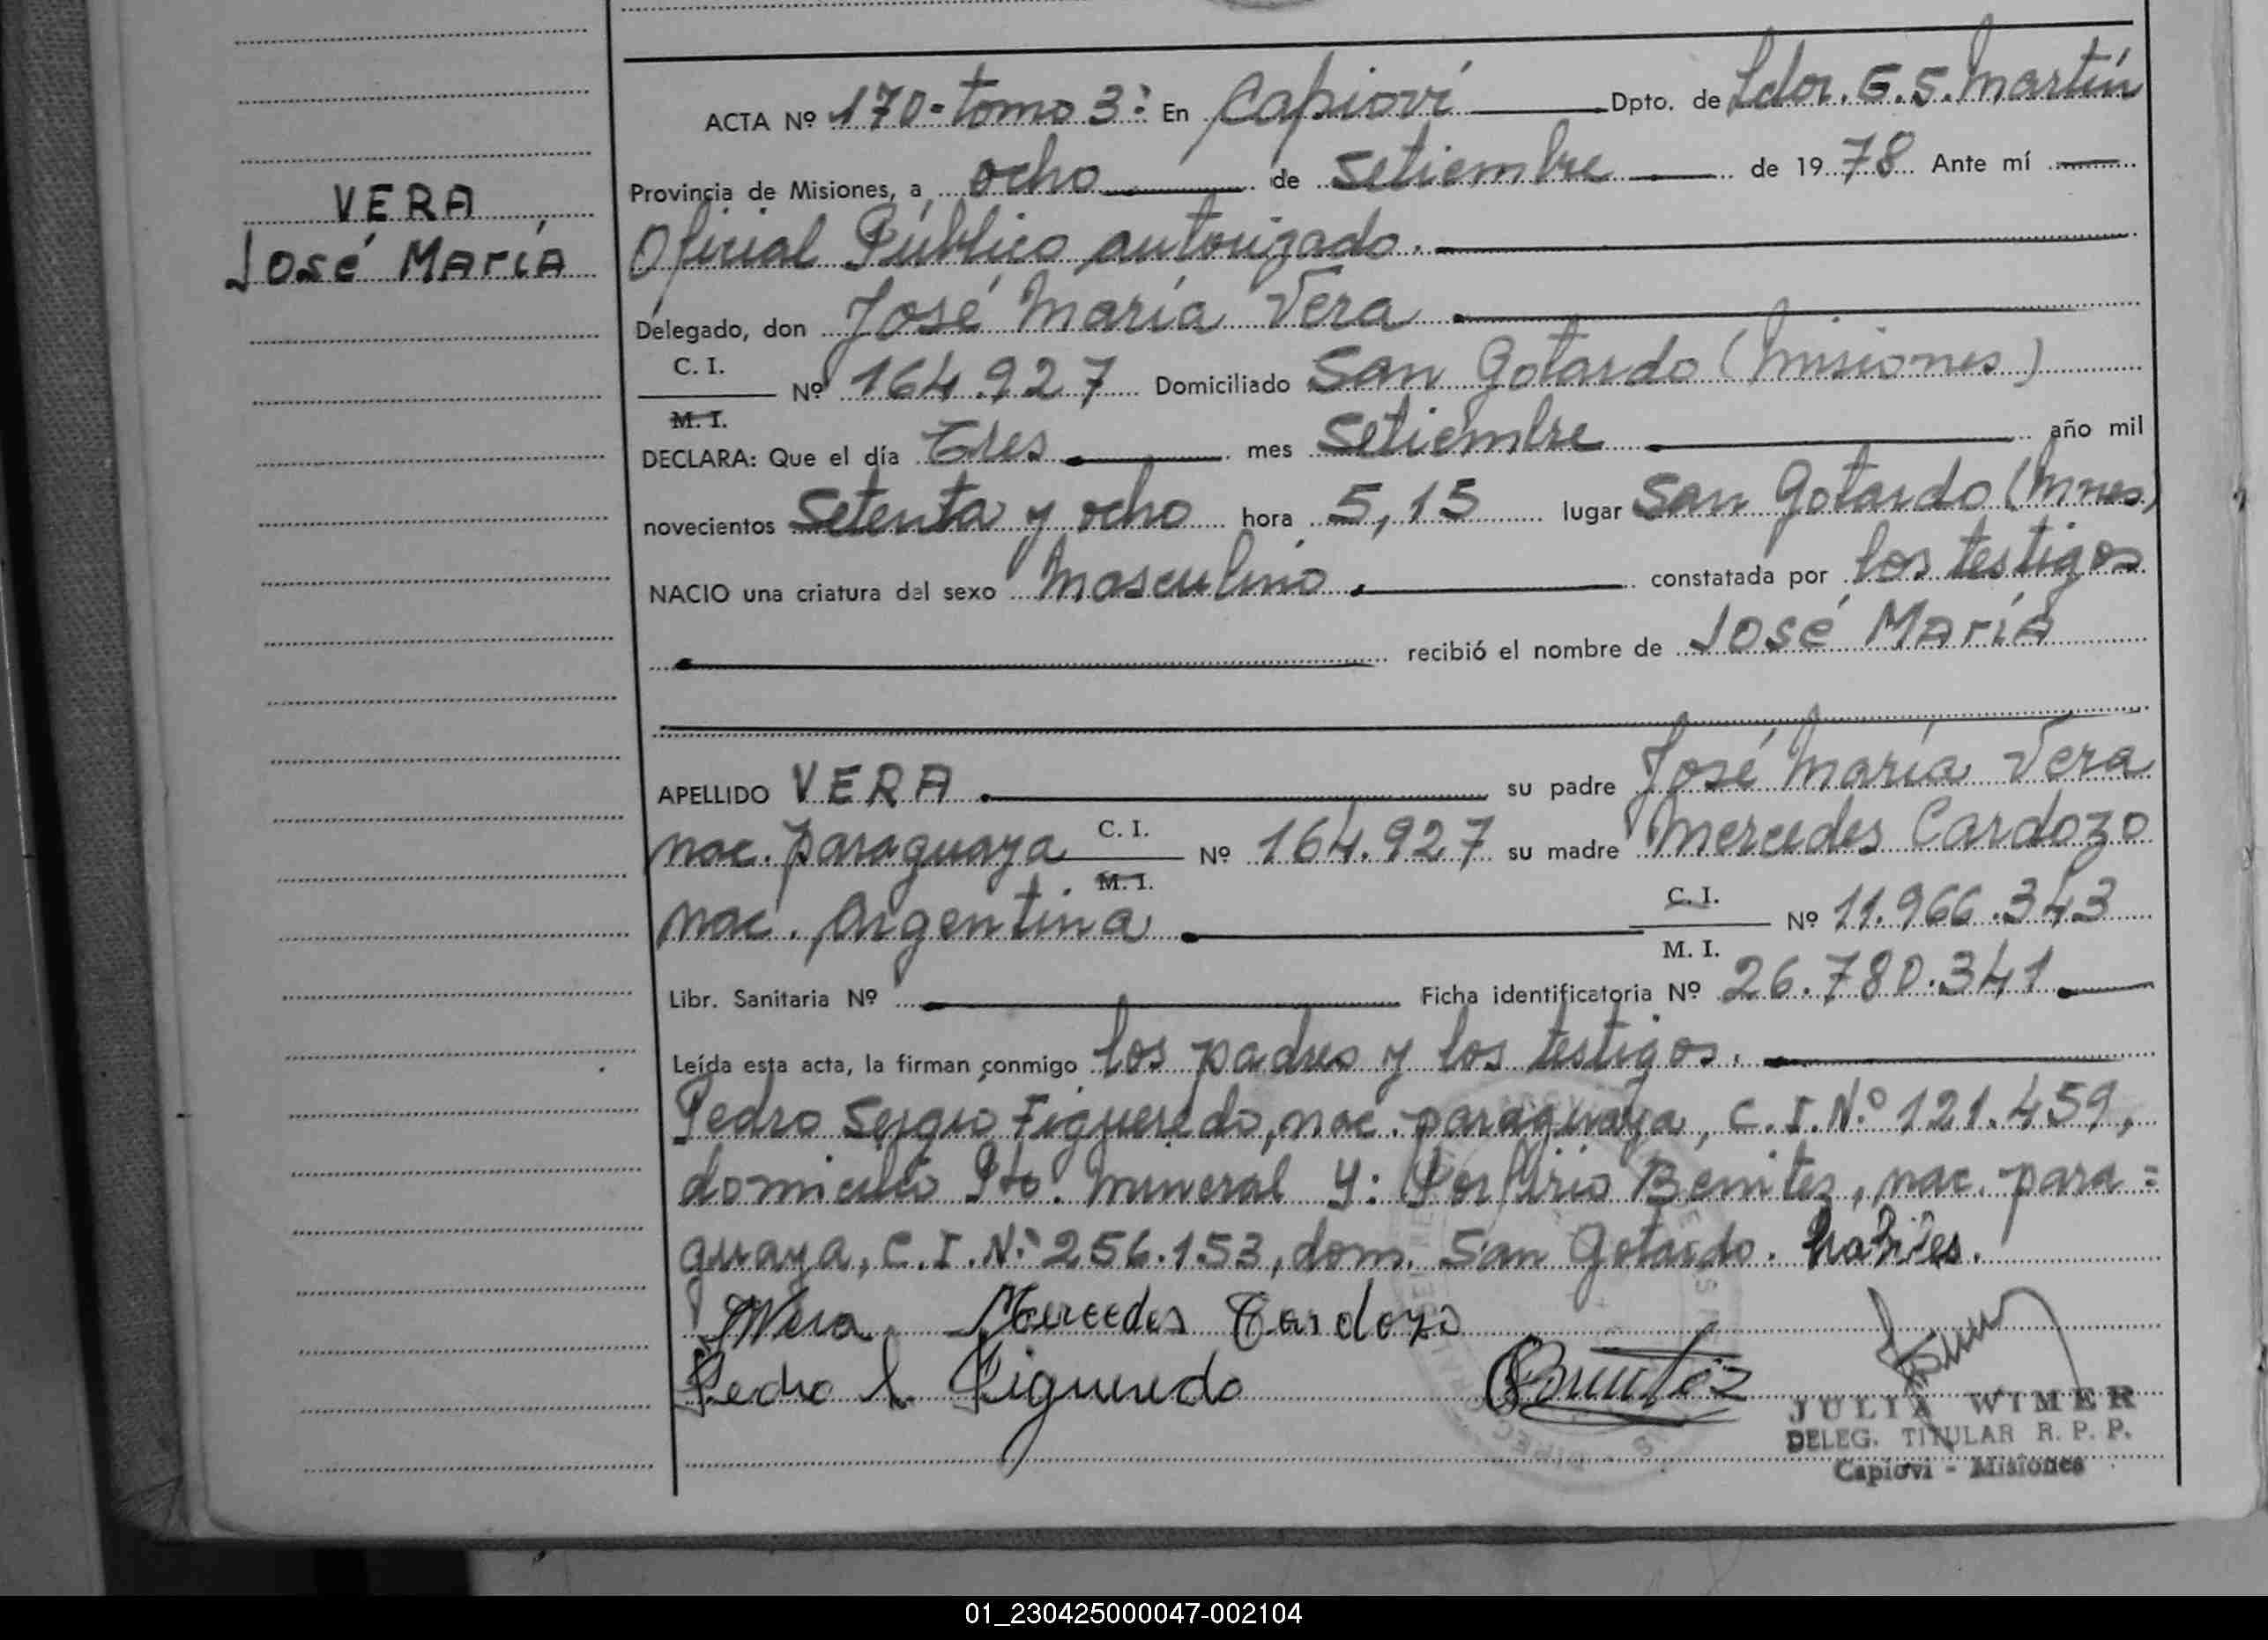 ACTA Nº 170 - tomo 3º En Capioví Dpto. de Ldor. G. S. Martín
Provincia de Misiones, a ocho de setiembre de 1978 Ante mí
VERA
José María
Oficial Público autorizado.
Delegado, don José María Vera
C. I.
Nº 164.927 Domiciliado San Gotardo (Misiones)
M. I.
DECLARA: Que el día Tres mes Setiembre año mil
novecientos Setenta y ocho hora 5,15 lugar San Gotardo (Mnes)
NACIO una criatura del sexo Masculino. constatada por los testigos
recibió el nombre de José María
APELLIDO VERA su padre José María Vera
nac. paraguaya C. I. Nº 164.927 su madre Mercedes Cardozo
M. I.
nac. Argentina C. I. Nº 11.966.343
M. I.
Libr. Sanitaria Nº Ficha identificatoria Nº 26.780.341
Leída esta acta, la firman conmigo los padres y los testigos.
Pedro Sergio Figueredo, nac. paraguaya, C. I. N.º 121.459,
domicilio Pto. Mineral Y: Porfirio Benitez, nac. para=
guaya, C. I. N.º 256.153, dom. San Gotardo. hábiles.
JMVera Mercedes Cardozo
Pedro S. Figueredo PBenitez
JULIA WIMER
DELEG. TITULAR R. P. P.
Capioví - Misiones
01_230425000047-002104